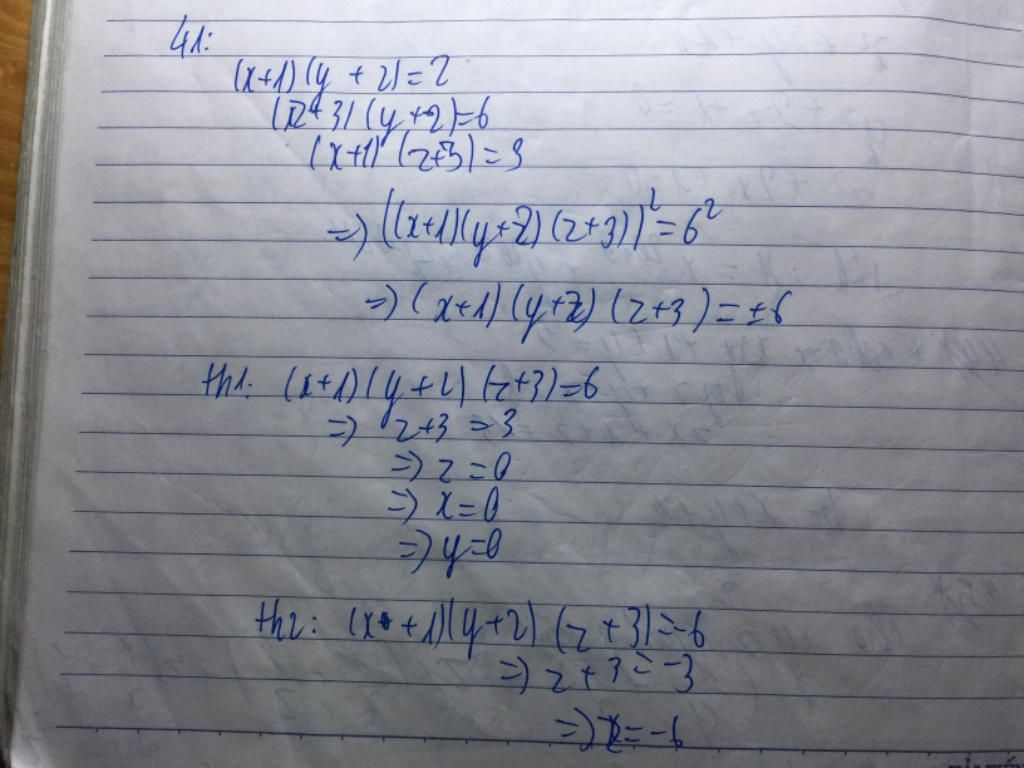 41:
(x+1)(y+2)=2
(z+3)(y+2)=6
(x+1)(z+3)=3
=>((x+1)(y+2)(z+3))²=6²
=>(x+1)(y+2)(z+3)=±6
th1: (x+1)(y+2)(z+3)=6
=> z+3=3
=> z=0
=> x=0
=> y=0
th2: (x+1)(y+2)(z+3)=-6
=> z+3=-3
=> z=-6